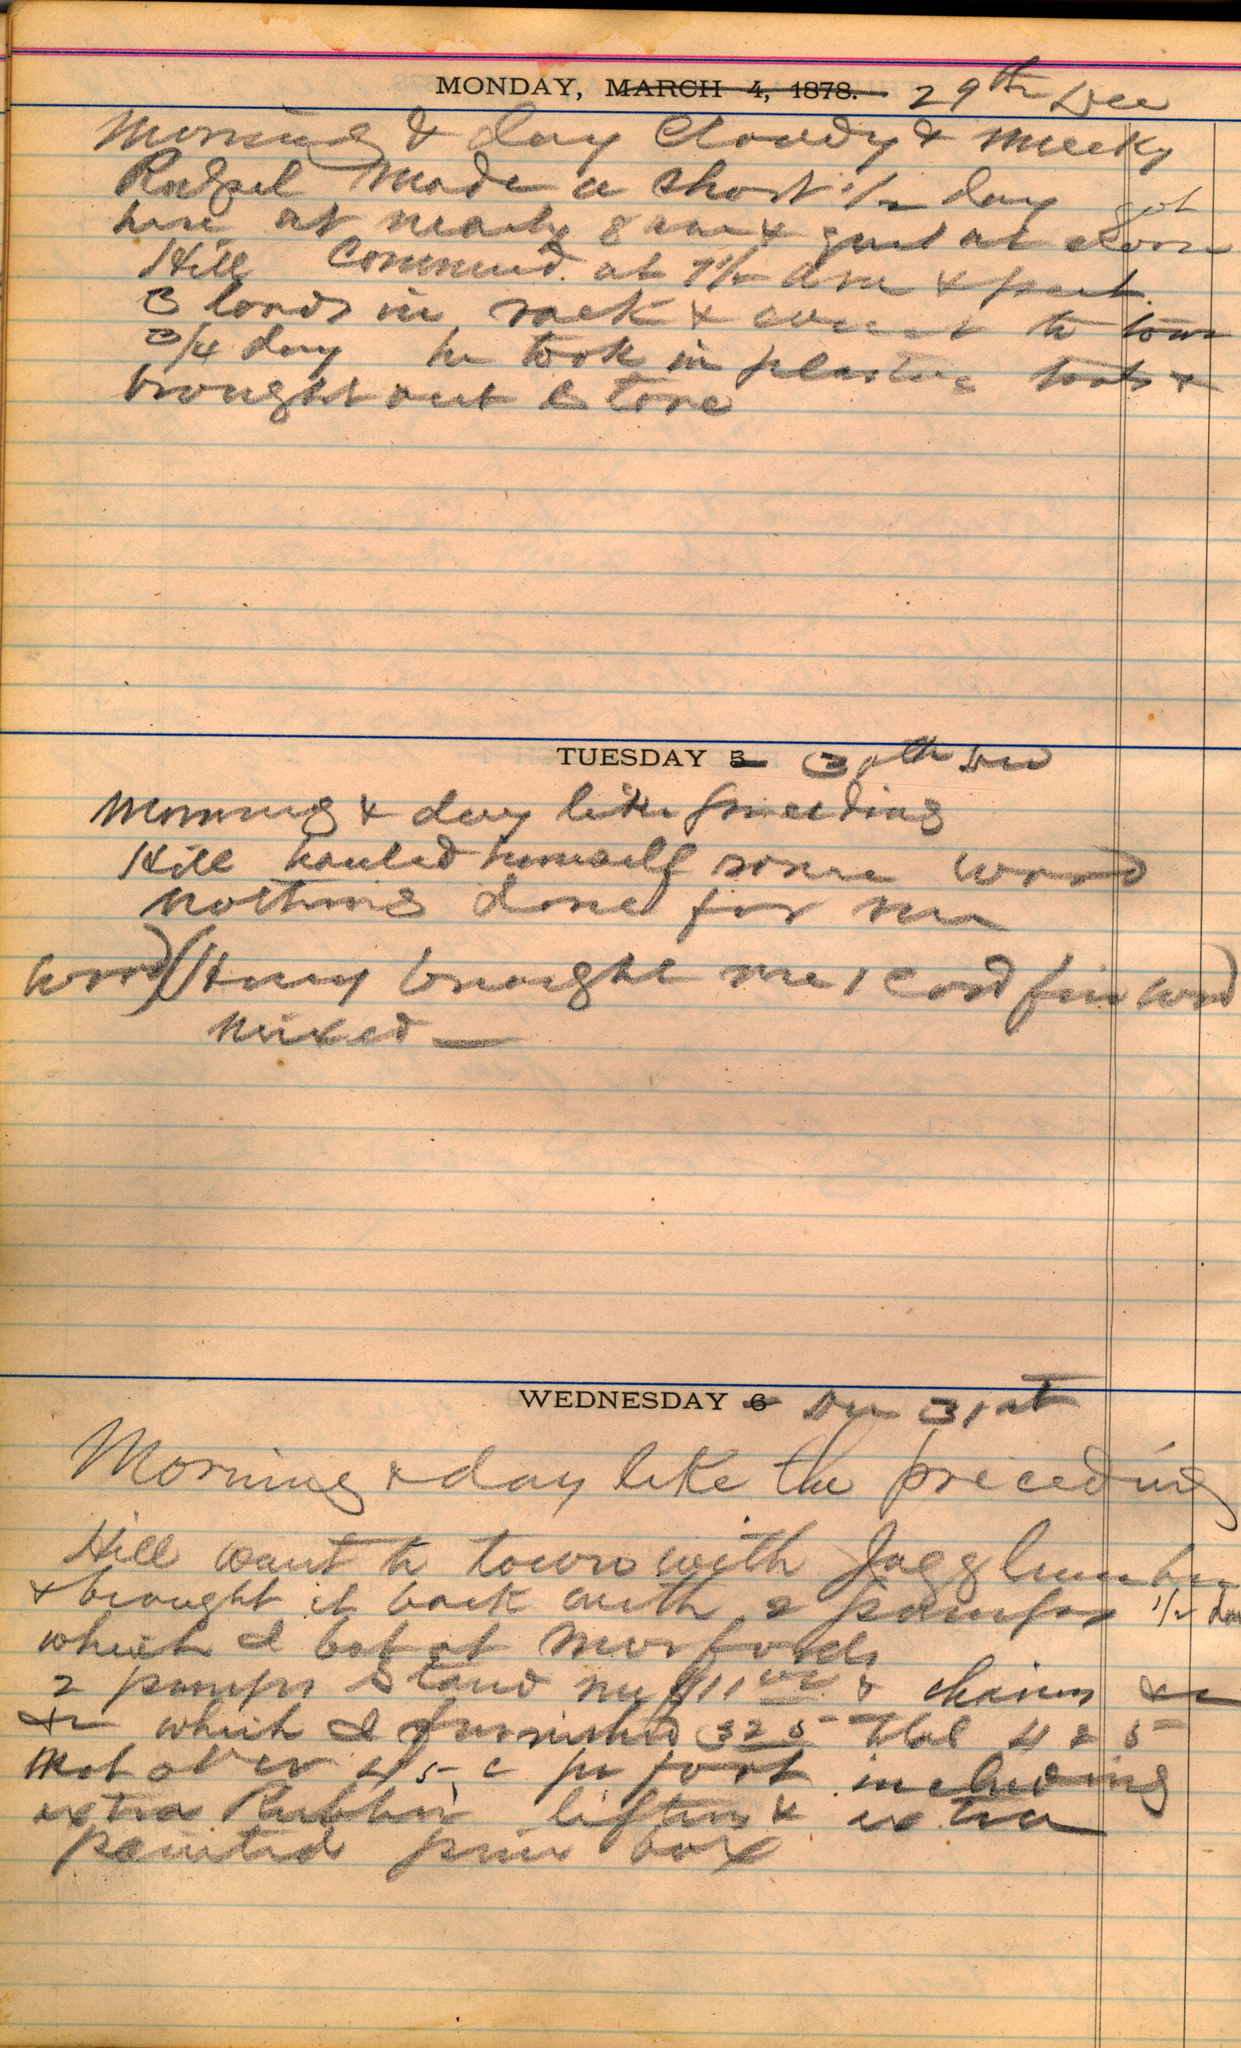 MONDAY, MARCH 4, 1878. 29th Dec
Morning & day Cloudy & Mucky
made a short 1/2 day got
here at nearly 8 am & quit at
Hill Commencd at 7 1/2 am & put
3 loads in rack & went to town
3/4 day he took in tools &
brought out Stone
TUESDAY 5 30th Dec
Morning & day like preceeding
Hill hauled himself some wood
nothing done for me
wood) (Huey brought me 1 cord fire wood)
Mixed —
WEDNESDAY 6 Dec 31st
Morning & day like the preceding
Hill went to town with Jagg lumber
& brought it back with 2 pumps 1/2 day
which I bot at Morfords
2 pumps Stand me $11 00 & chains &c
&c which I furnished 325 total
45 c per foot including
extra Rubber lifters & extra
painted pine box